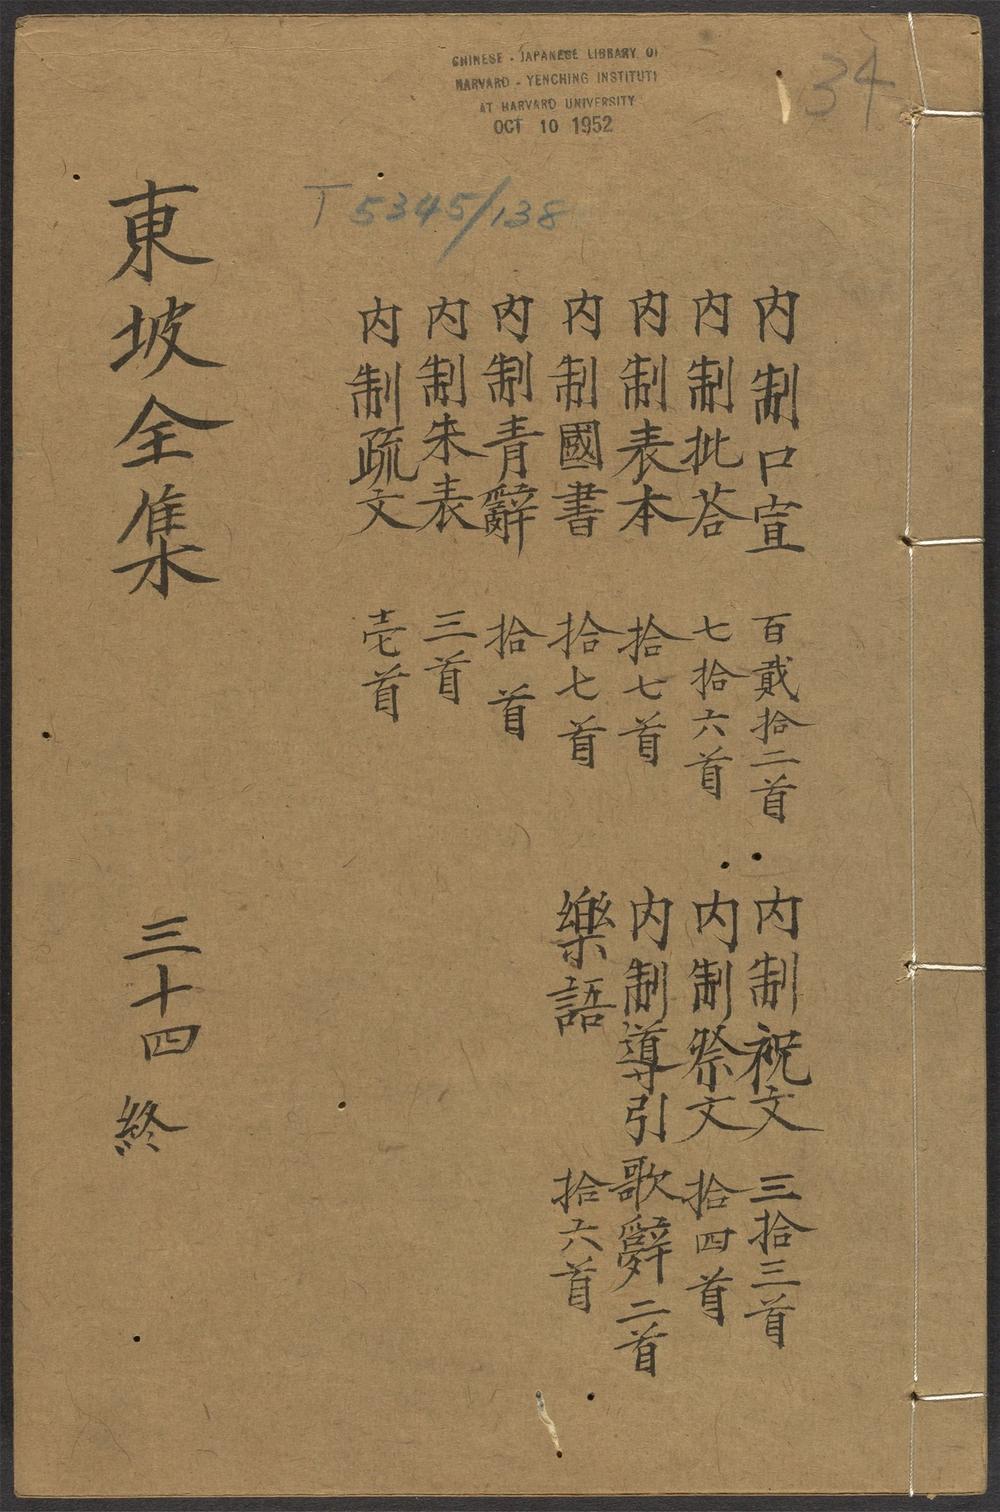 CHINESE - JAPANESE LIBRARY OF
HARVARD - YENCHING INSTITUTE
AT HARVARD UNIVERSITY
OCT 10 1952
34
T 5345/138
內制口宣 百貳拾二首
內制批荅 七拾六首
內制表本 拾七首
內制國書 拾七首
內制青辭 拾首
內制朱表 三首
內制疏文 壱首
內制祝文 三拾三首
內制祭文 拾四首
內制導引歌辭 二首
樂語 拾六首
東坡全集 三十四 終